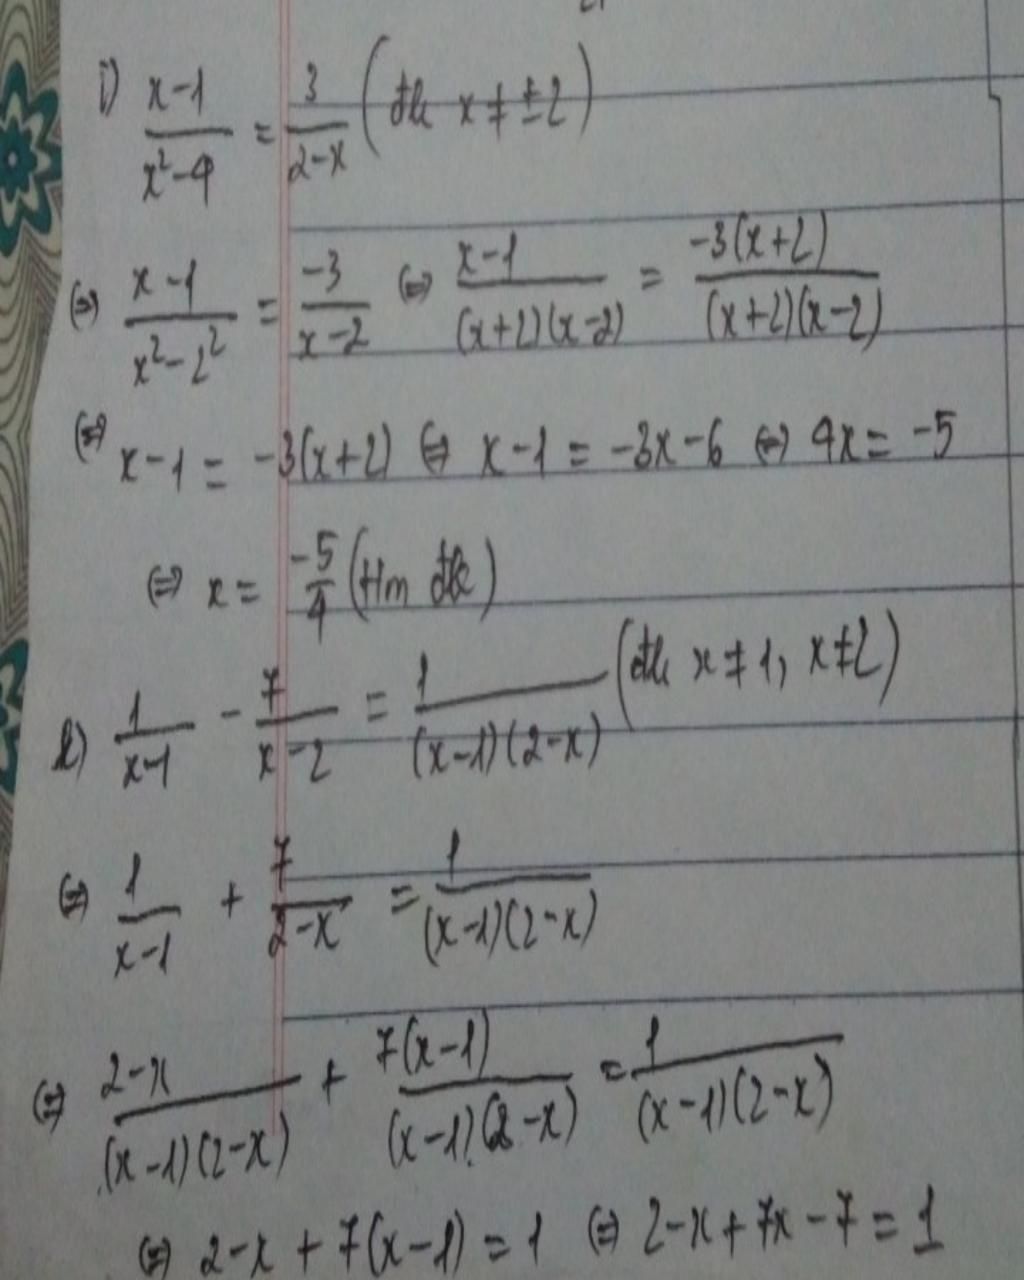 i) (x-1)/(x²-4) = 3/(2-x) (đk x ≠ ±2)
⇔ (x-1)/(x²-2²) = -3/(x-2) ⇔ (x-1)/((x+2)(x-2)) = -3(x+2)/((x+2)(x-2))
⇔ x-1 = -3(x+2) ⇔ x-1 = -3x-6 ⇔ 4x = -5
⇔ x = -5/4 (tm đk)
k) 1/(x-1) - 7/(x-2) = 1/((x-1)(2-x)) (đk x ≠ 1, x ≠ 2)
⇔ 1/(x-1) + 7/(2-x) = 1/((x-1)(2-x))
⇔ (2-x)/((x-1)(2-x)) + 7(x-1)/((x-1)(2-x)) = 1/((x-1)(2-x))
⇔ 2-x + 7(x-1) = 1 ⇔ 2-x+7x-7 = 1